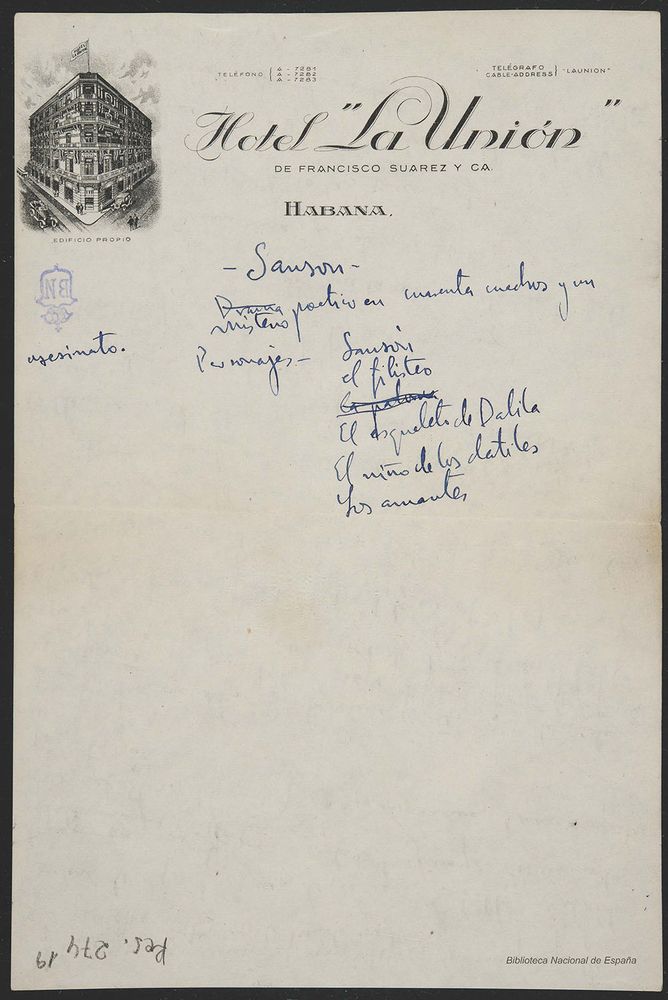 TELÉFONO { A - 7281
A - 7282
A - 7283
TELÉGRAFO
CABLE-ADDRESS } "LAUNION"
Hotel "La Unión"
DE FRANCISCO SUAREZ Y CA.
HABANA.
EDIFICIO PROPIO
BN
- Sanson -
Drama
Misterio poetico en cuarenta cuadros y un
asesinato.
Personajes - Sansón
el filisteo
El esqueleto de Dalila
El niño de los datiles
Los amantes
Res. 274
19
Biblioteca Nacional de España